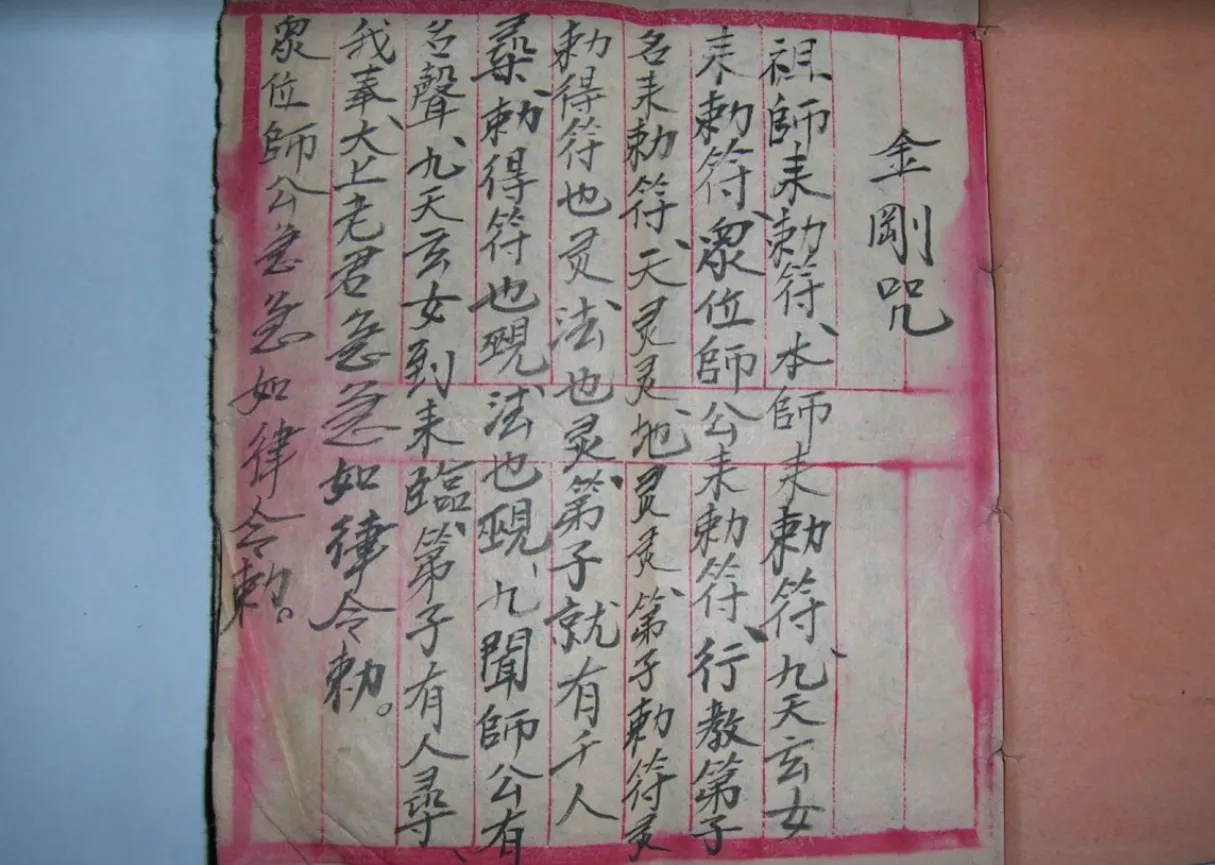 金剛咒
祖師来勅符、本師来勅符、九天玄女
来勅符、眾位師公来勅符、行教第子
名来勅符、天灵灵、地灵灵、第子勅符灵
勅得符也灵、法也灵、第子就有千人
尋、勅得符也現、法也現、九聞師公有
名聲、九天玄女到来臨、第子有人尋、
我奉大上老君急急如律令勅。
眾位師公急急如律令勅。